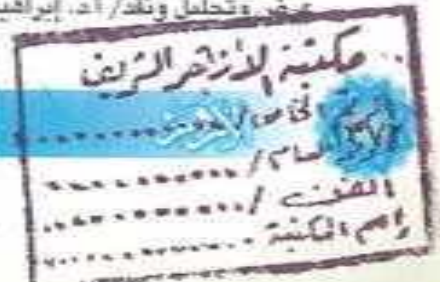 عرض وتحليل ونقد/ أ.د. إبراهيم
مكتبة الأزهر الشريف
الخاص/
العام/
الفن/
اسم المكتبة